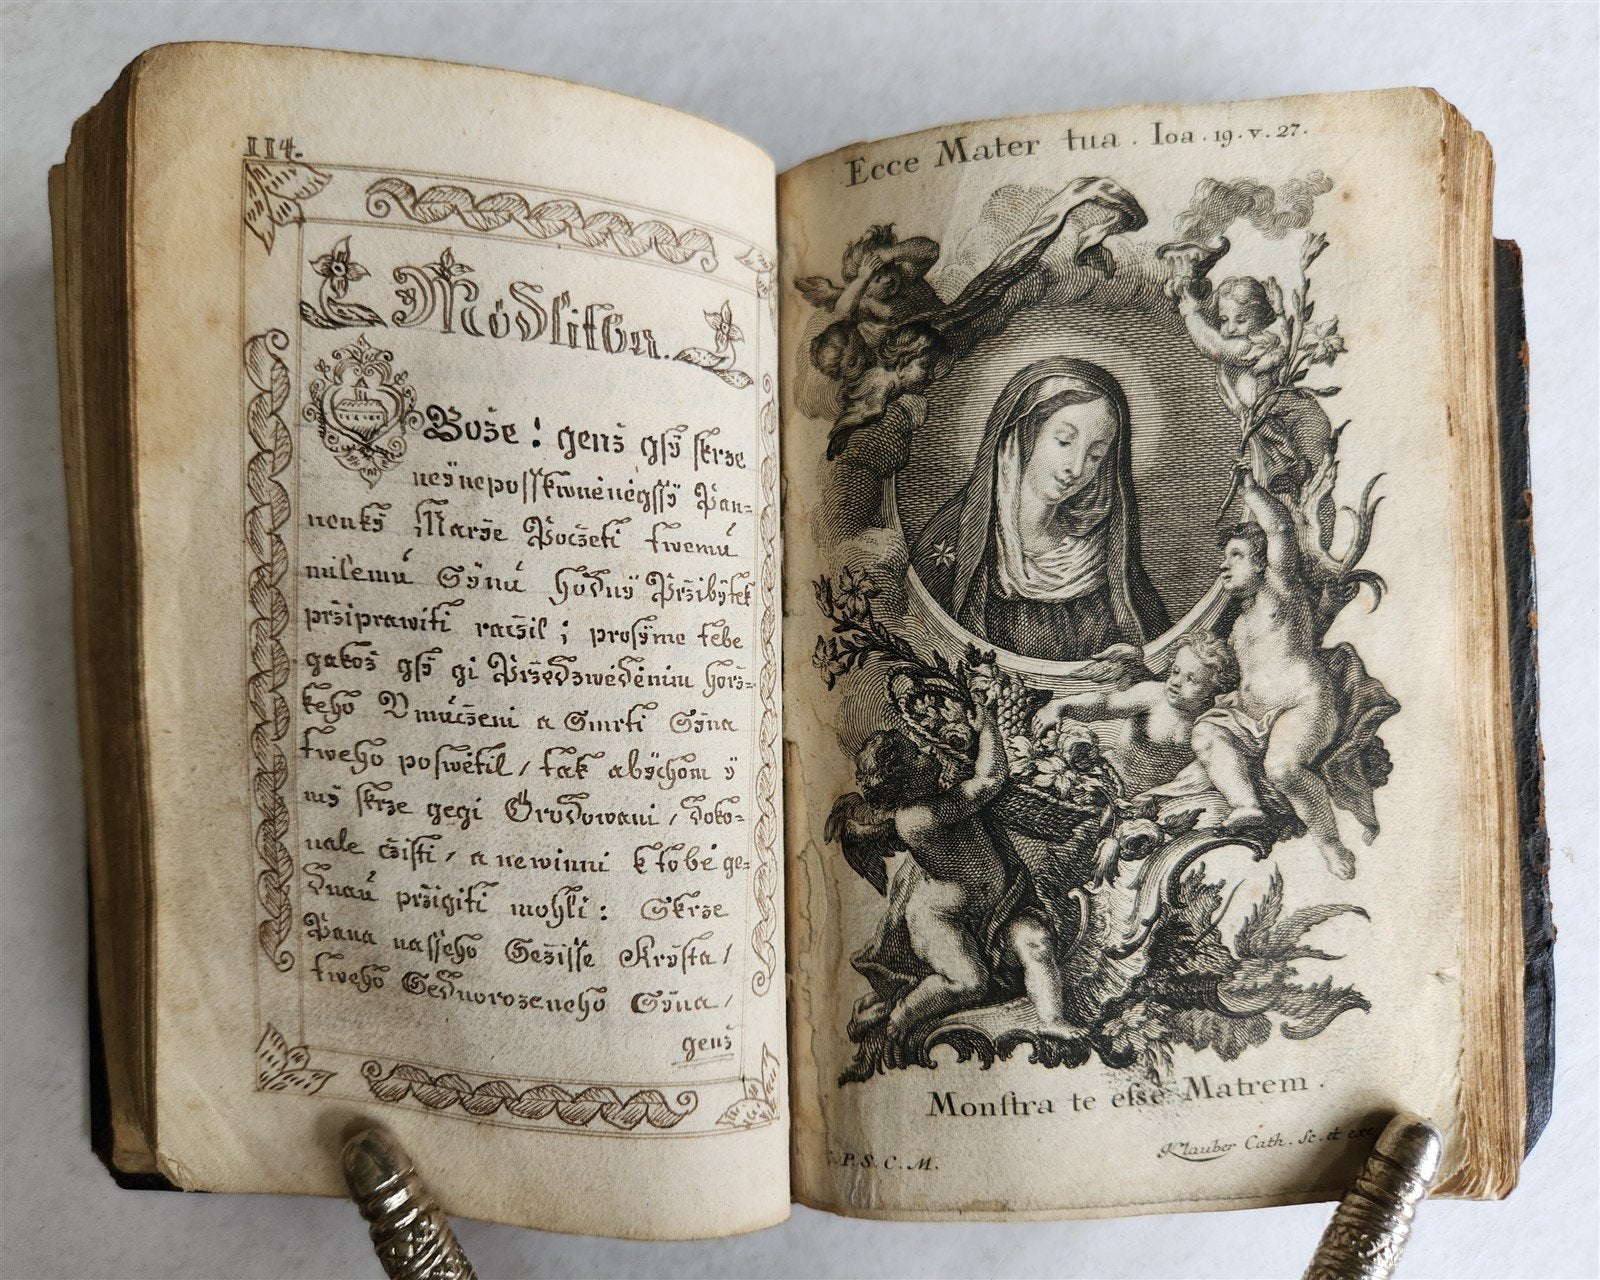 114.
Modlitba.
Bože: genž gsÿ skrze
neÿneposſkwrněněgſſÿ Pan=
nenkÿ Marÿe Početi twemú
milemú Sÿnú hodnÿ Přžibÿtek
pržiprawiti račžil; prosÿme tebe
gakož gsÿ gi Pržedzwěděnim horž=
keho Umúčženi a Smrti Sÿna
tweho poswětil, tak abÿchom ÿ
mÿ skrze gegi Orodowani, doko=
nale čžisti, a newinni k tobě ge=
dnaú pržigiti mohli: Skrze
Pana nasſeho Gežisſe Krÿsta,
tweho Gednorozeneho Sÿna,
genž
Ecce Mater tua. Ioa. 19. v. 27.
Monſtra te eſse Matrem.
P. S. C. M.
Klauber Cath. Sc. et exc.